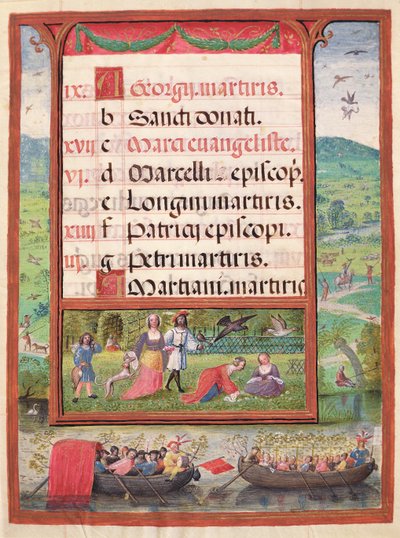 ix. A Georgij.martiris.
b Sancti donati.
xvij c Marci euangeliste.
vj. d Marcelli episcop̃.
e Longini martiris.
xiiij f Patricij episcopi.
iij. g Petri martiris.
A Martiani.martiris